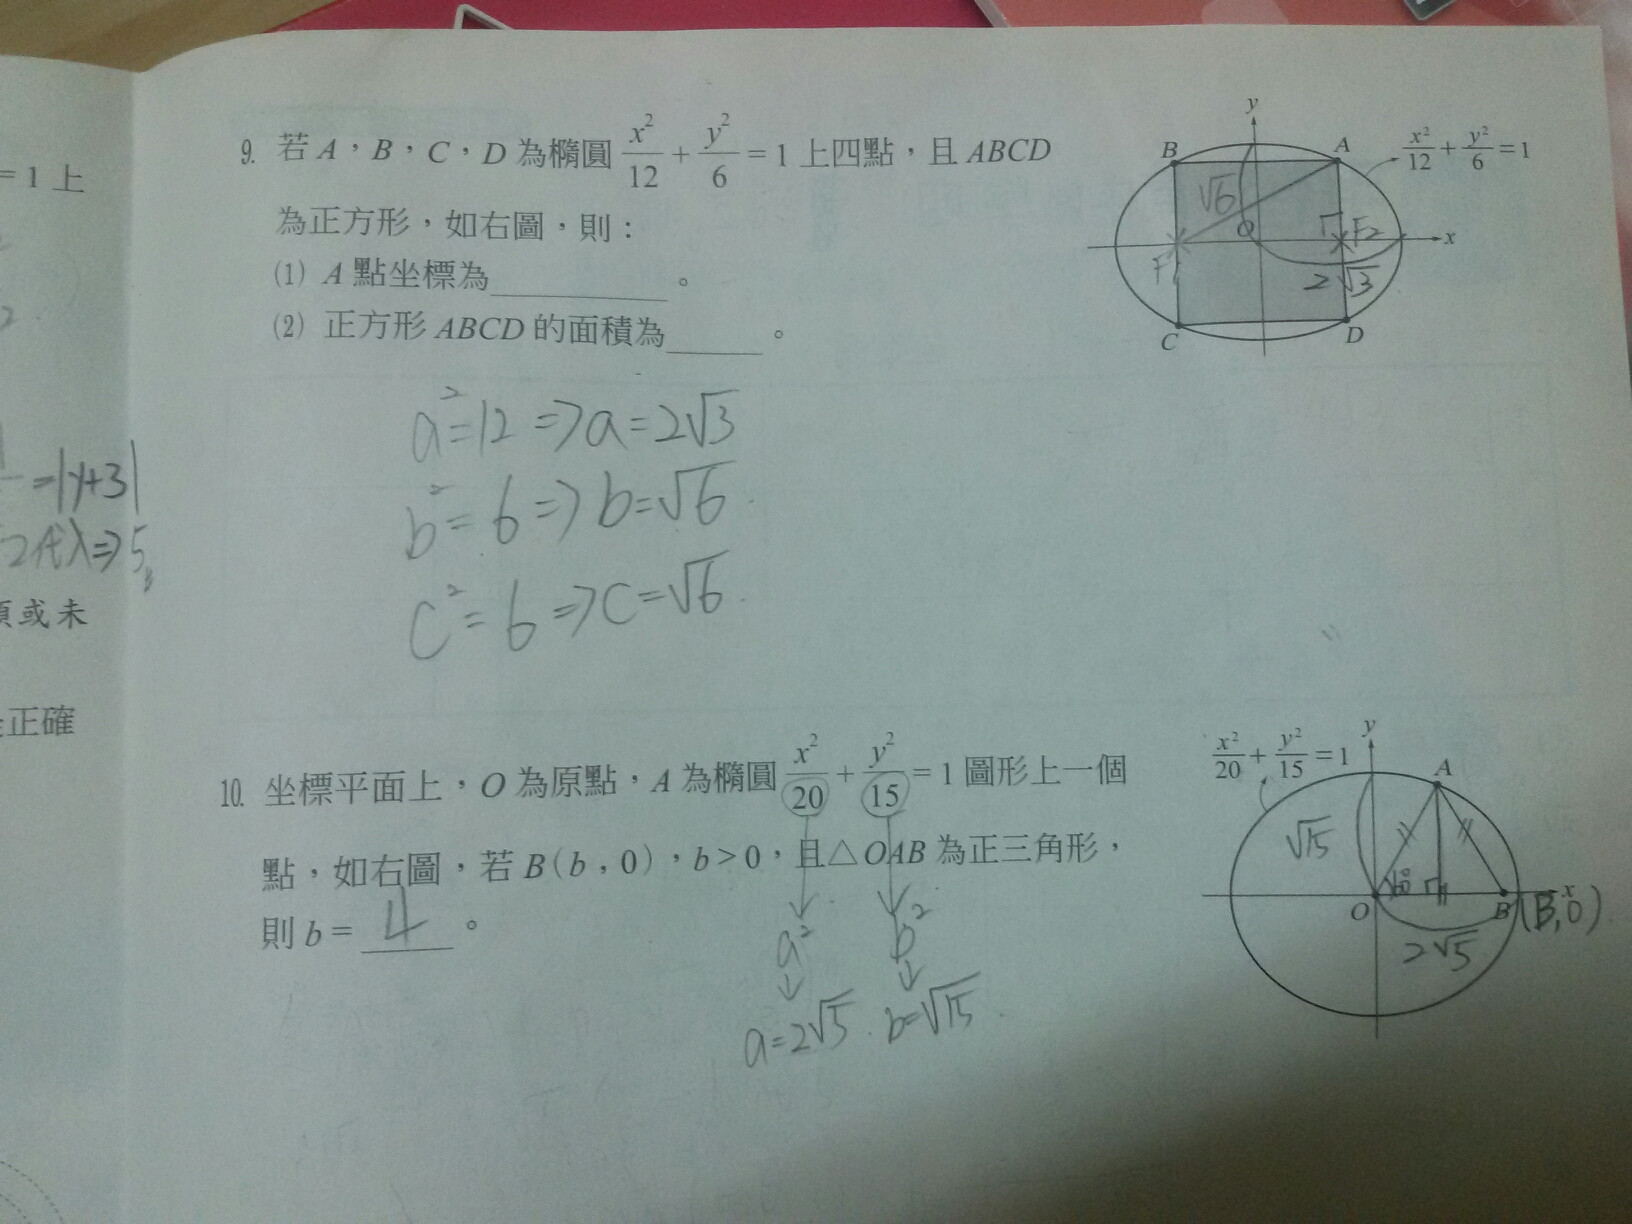 = 1 上
2.
= |y+3|
代入 => 5
項或未
正確
9. 若 A，B，C，D 為橢圓 x²/12 + y²/6 = 1 上四點，且 ABCD
為正方形，如右圖，則：
(1) A 點坐標為________。
(2) 正方形 ABCD 的面積為____。
y
B A x²/12 + y²/6 = 1
√6
O F2 x
F1
2√3
C D
a² = 12 => a = 2√3
b² = 6 => b = √6
c² = 6 => c = √6
10. 坐標平面上，O 為原點，A 為橢圓 x²/20 + y²/15 = 1 圖形上一個
點，如右圖，若 B(b，0)，b > 0，且△OAB 為正三角形，
則 b = 4 。
a² b²
a = 2√5 b = √15
x²/20 + y²/15 = 1 y
A
√15
60°
O B x (B,0)
2√5